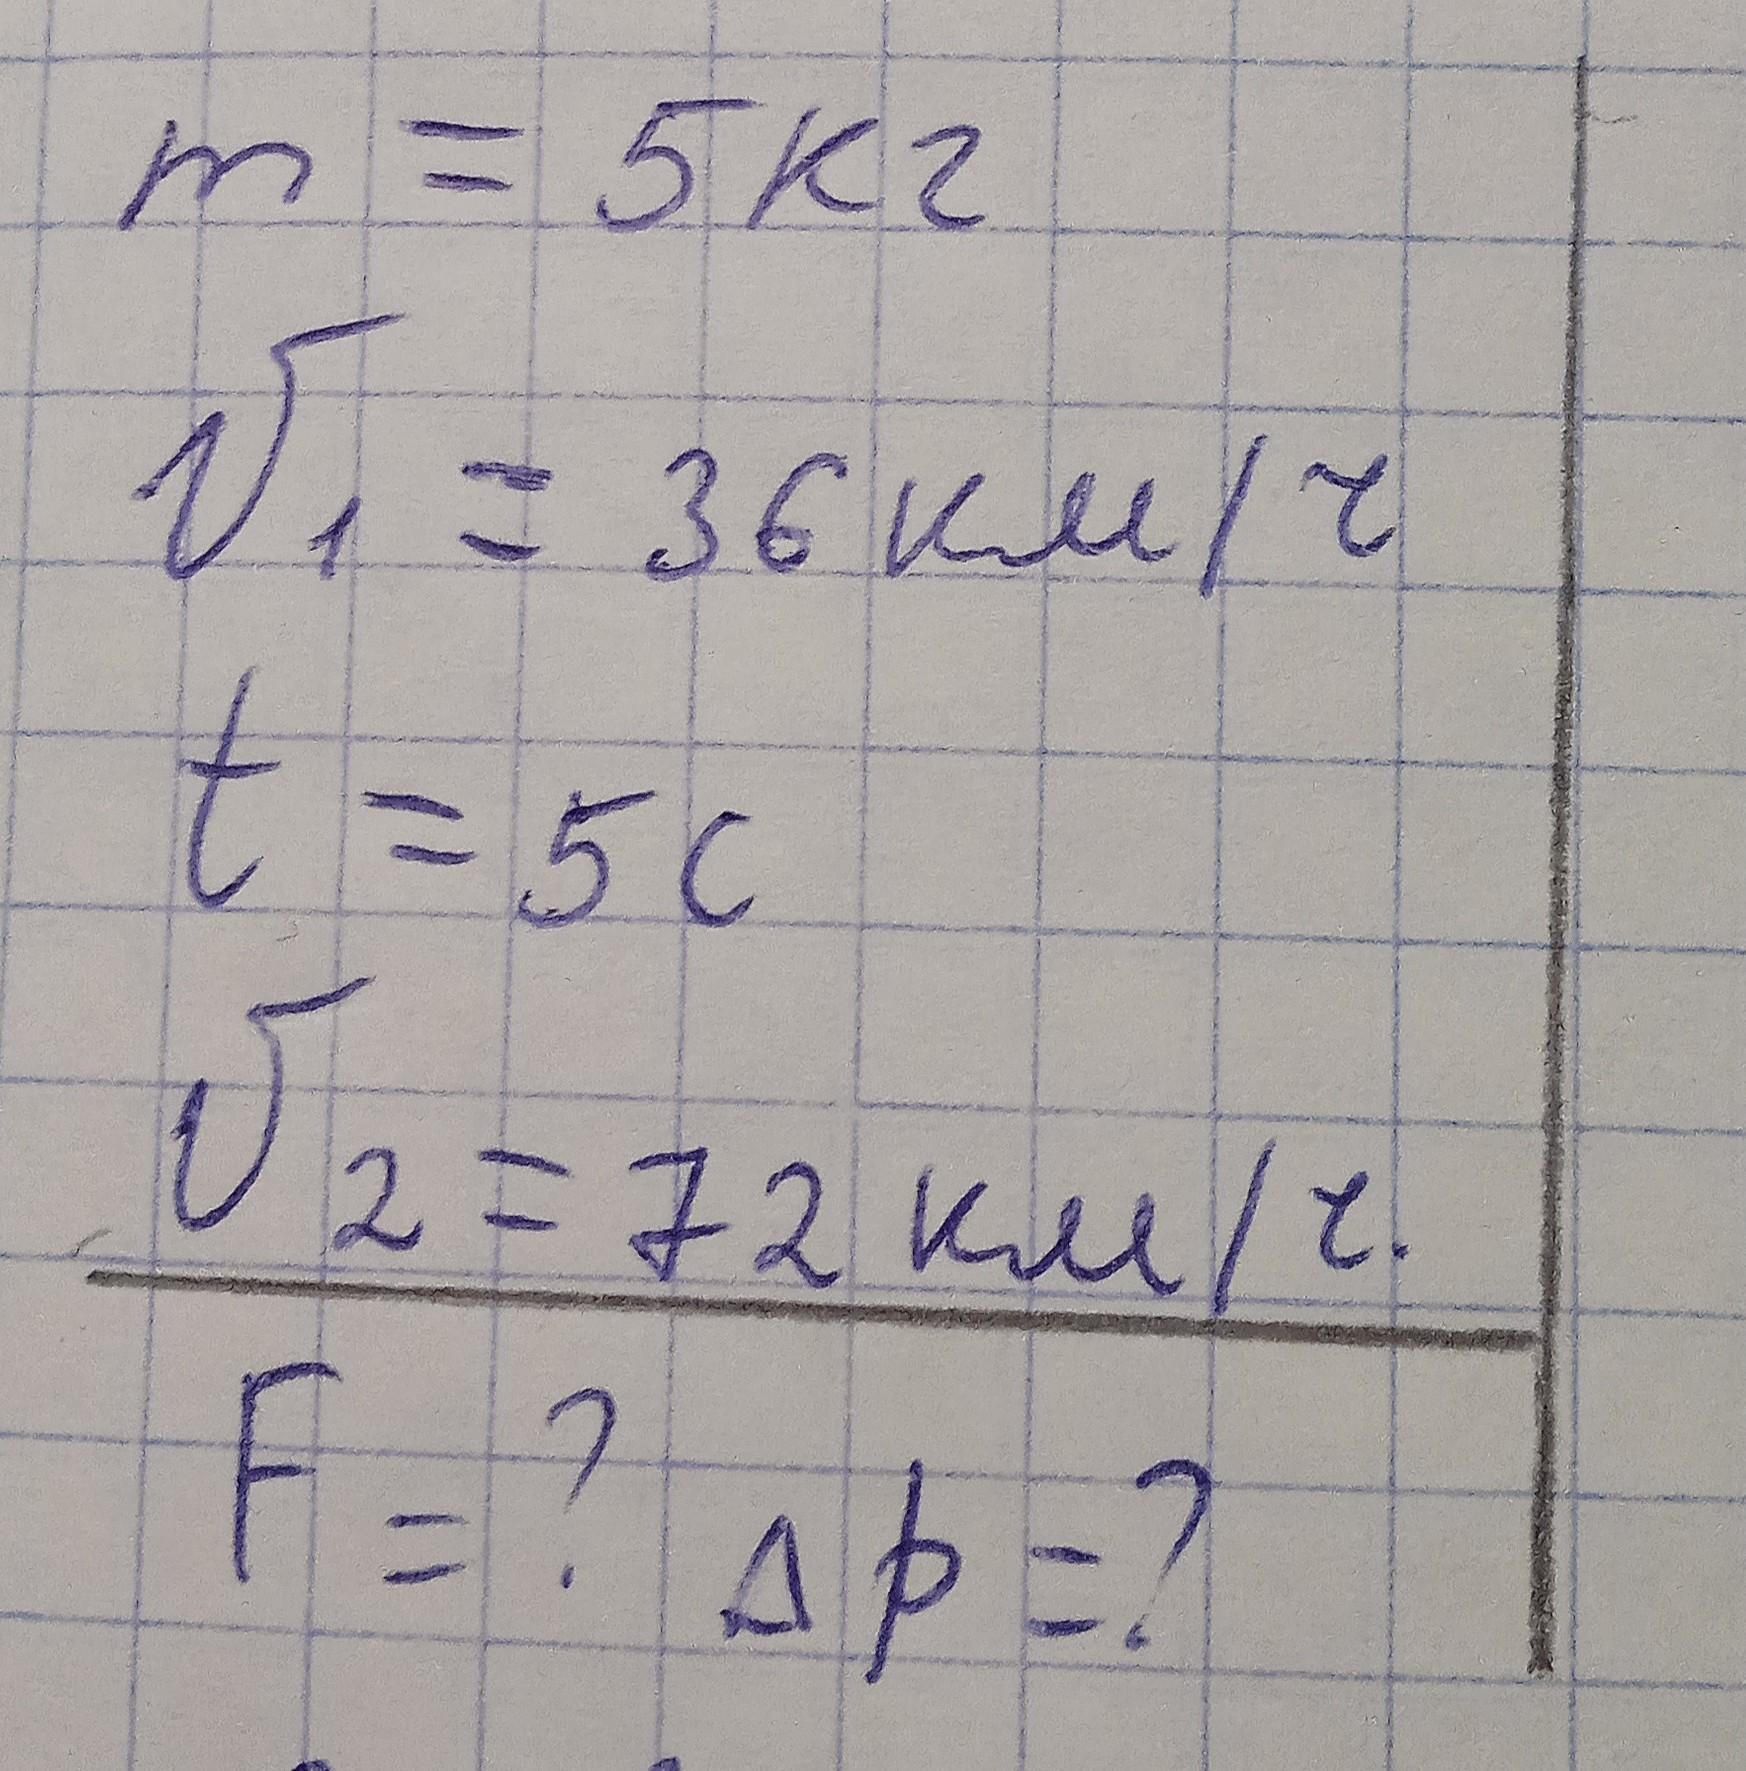 m = 5кг
V1 = 36км/ч
t = 5с
V2 = 72км/ч.
F = ? Δp = ?